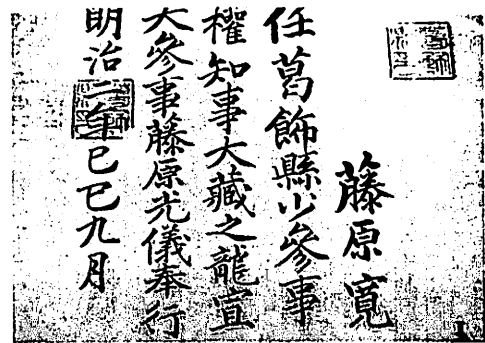 藤原寛
任葛飾縣少參事
權知事大藏之龍宣
大參事藤原光儀奉行
明治二年己巳九月